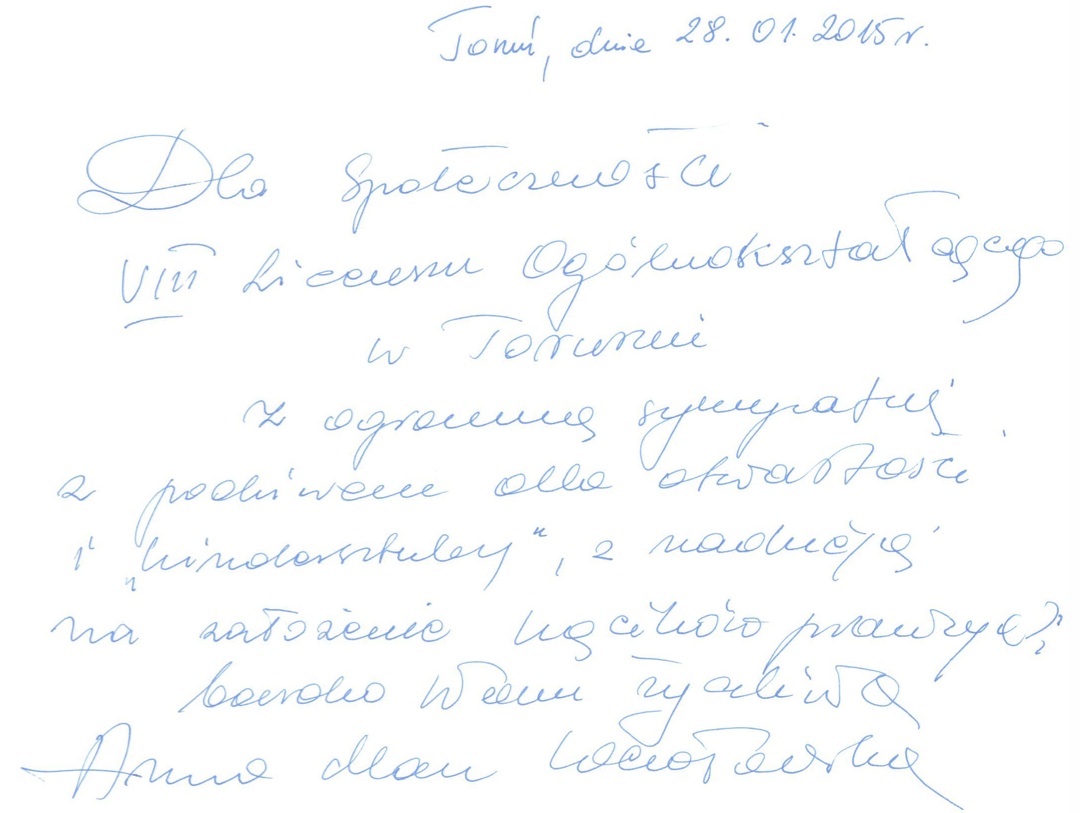 Toruń, dnia 28. 01. 2015 r.
Dla Społeczności
VIII Liceum Ogólnokształcącego
w Toruniu
z ogromną sympatią
z podziwem dla otwartości
i „kindersztuby", z nadzieją
na założenie kącików prawnych?
bardzo Wam życzliwa
Anna Maria